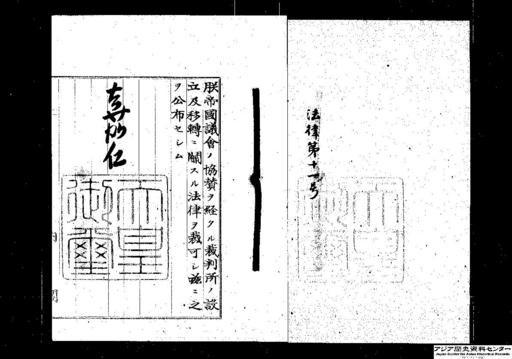 法律第十一号
朕帝國議會ノ協賛ヲ経タル裁判所ノ設
立及移轉ニ關スル法律ヲ裁可シ玆ニ之
ヲ公布セシム
嘉仁
天皇
御璽
アジア歴史資料センター
Japan Center for Asian Historical Records